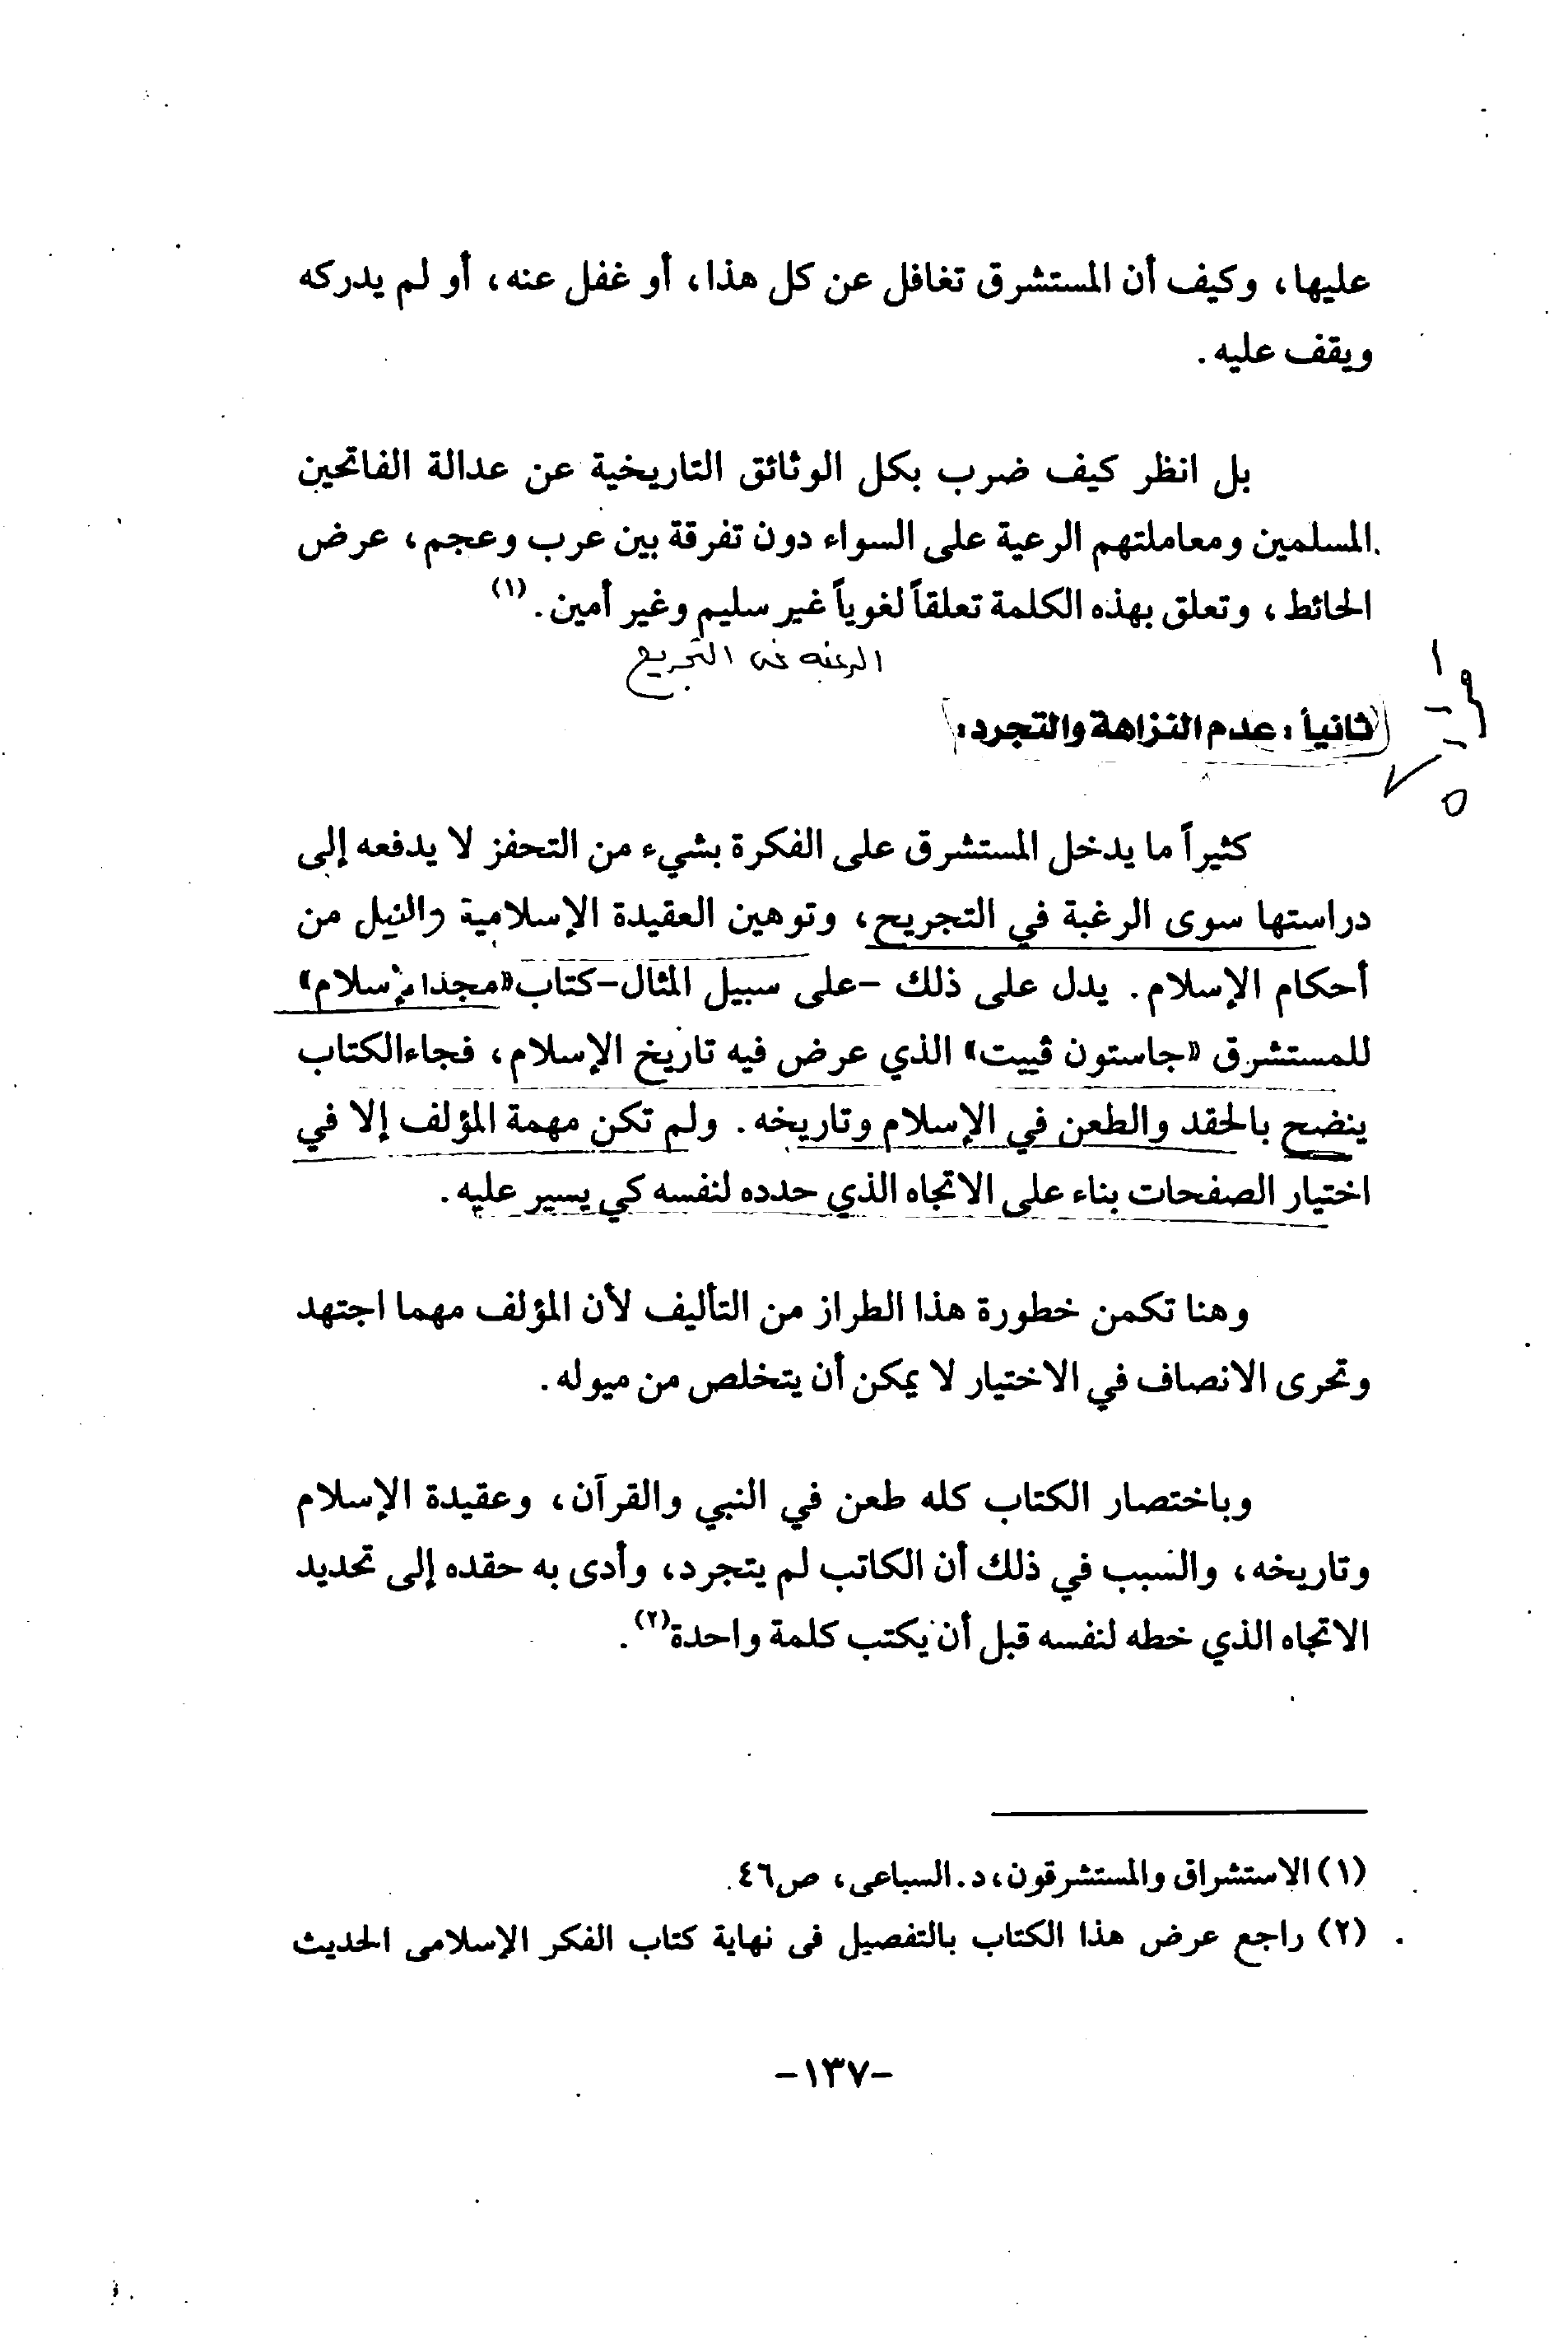 عليها، وكيف أن المستشرق تغافل عن كل هذا، أو غفل عنه، أو لم يدركه
ويقف عليه.
بل انظر كيف ضرب بكل الوثائق التاريخية عن عدالة الفاتحين
المسلمين ومعاملتهم الرعية على السواء دون تفرقة بين عرب وعجم، عرض
الحائط، وتعلق بهذه الكلمة تعلقاً لغوياً غير سليم وغير أمين. (١)
الرغبة في التجريح
ثانياً: عدم النزاهة والتجرد:
كثيراً ما يدخل المستشرق على الفكرة بشيء من التحفز لا يدفعه إلى
دراستها سوى الرغبة في التجريح، وتوهين العقيدة الإسلامية والنيل من
أحكام الإسلام. يدل على ذلك -على سبيل المثال-كتاب«مجد الإسلام»
للمستشرق «جاستون ڤييت» الذي عرض فيه تاريخ الإسلام، فجاءالكتاب
ينضح بالحقد والطعن في الإسلام وتاريخه. ولم تكن مهمة المؤلف إلا في
اختيار الصفحات بناء على الاتجاه الذي حدده لنفسه كي يسير عليه.
وهنا تكمن خطورة هذا الطراز من التأليف لأن المؤلف مهما اجتهد
وتحرى الانصاف في الاختيار لا يمكن أن يتخلص من ميوله.
وباختصار الكتاب كله طعن في النبي والقرآن، وعقيدة الإسلام
وتاريخه، والسبب في ذلك أن الكاتب لم يتجرد، وأدى به حقده إلى تحديد
الاتجاه الذي خطه لنفسه قبل أن يكتب كلمة واحدة(٢).
(١) الاستشراق والمستشرقون، د. السباعى، ص٤٦.
(٢) راجع عرض هذا الكتاب بالتفصيل فى نهاية كتاب الفكر الإسلامى الحديث
-١٣٧-